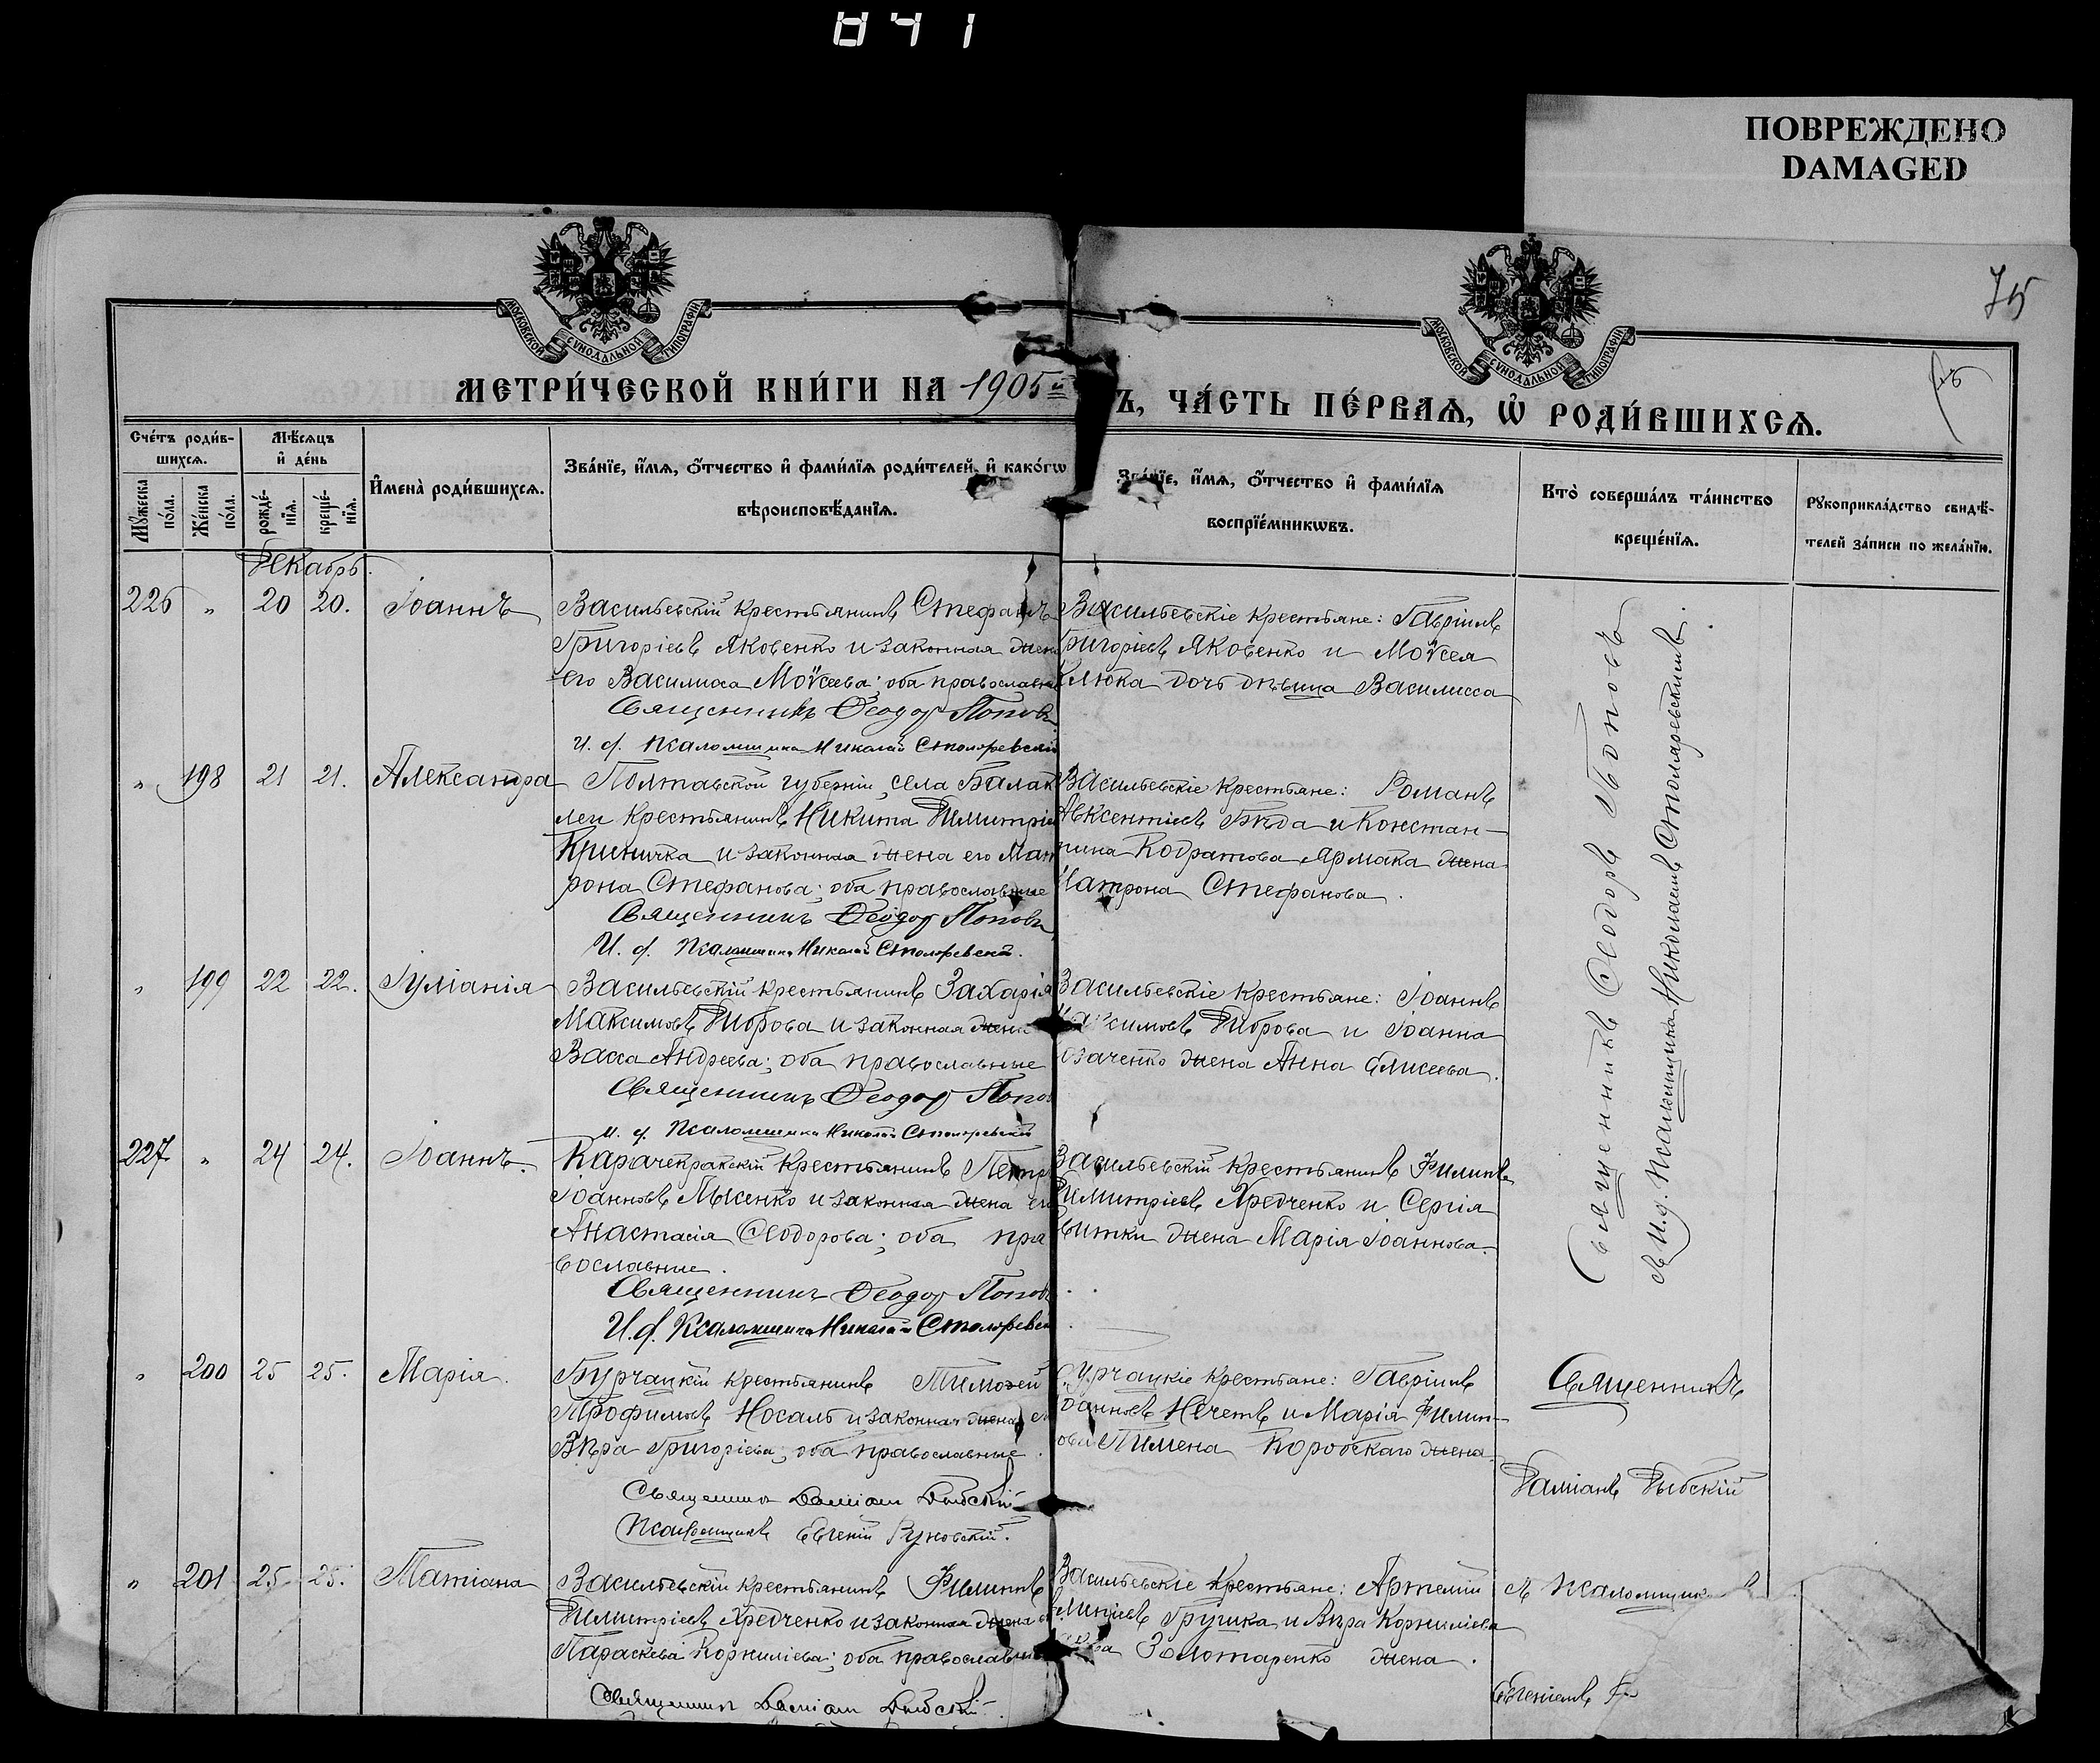 841
ПОВРЕЖДЕНО
DAMAGED
75
МОСКОВСКОЙ СѴНОДАЛЬНОЙ ТИПОГРАФІИ
МОСКОВСКОЙ СѴНОДАЛЬНОЙ ТИПОГРАФІИ
МЕТРИ́ЧЕСКОЙ КНИ́ГИ НА 1905й
Ъ, ЧА́СТЬ ПЕ́РВАѦ, Ѡ҆ РОДИ́ВШИХСѦ.
Сче́тъ роди́в-
шихсѧ.
Мѣ́сѧцъ
и҆ де́нь
Мꙋ́жеска
по́ла.
Же́нска
по́ла.
рожде́-
нїѧ.
креще́-
нїѧ.
И҆мена̀ роди́вшихсѧ.
Зва́нїе, и҆́мѧ, ѻ҆́тчество и҆ фами́лїѧ роди́телей, и҆ како́гѡ
вѣроисповѣ́данїѧ.
Зва́нїе, и҆́мѧ, ѻ҆́тчество и҆ фами́лїѧ
воспрїе́мникѡвъ.
Кто̀ соверша́лъ та́инство
креще́нїѧ.
Рꙋкоприкла́дство свидѣ́-
телей за́писи по жела́нїю.
Декабрь.
226 „ 20 20. Іоаннъ
Васильевскій крестьянинъ Стефанъ
Григоріевъ Яковенко и законная жена
его Василисса Моѵсеева; оба православные
Священникъ Ѳеодор Попов
И. д. псаломщика Николай Столяревскій
Васильевскіе крестьяне: Гавріилъ
Григоріевъ Яковенко и Моѵсея
Клюка дочь дѣвица Василисса
„ 198 21 21. Александра
Полтавской губерніи, села Балак
леи крестьянинъ Никита Димитріев
Криничка и законная жена его Мат
рона Стефанова; оба православные
Священникъ Ѳеодор Поповъ
И. д. Псаломщика Николай Столяревскій.
Васильевскіе крестьяне: Романъ
Авксентіевъ Бѣда и Констан-
тина Кодратова Ярмака жена
Матрона Стефанова.
„ 199 22 22. Іуліанія
Васильевскій крестьянинъ Захарія
Максимовъ Диброва и законная жена
Васса Андреева; оба православные
Священникъ Ѳеодор Попов
И. д. Псаломщика Николай Столяревскій
Васильевскіе крестьяне: Іоаннъ
Максимовъ Диброва и Іоанна
заченко жена Анна Елисеева.
227 „ 24 24. Іоаннъ.
Карачекракскій крестьянинъ Петр
Іоанновъ Лысенко и законная жена его
Анастасія Ѳеодорова; оба пра
вославные.
Священникъ Ѳеодор Попов
И. д. Псаломщика Николай Столяревск
Васильевскій крестьянинъ Филиппъ
Димитріевъ Хредченко и Сергія
витки жена Марія Іоаннова.
Священникъ Ѳеодоръ Поповъ
съ И. д. псаломщика Николаемъ Столяревскимъ.
„ 200 25 25. Марія.
Бурчацкій крестьянинъ Тимоѳей
Трофимовъ Носаль и законная жена его
Вѣра Григоріева; оба православные.
Священник Даміан Дыбскій
Псаломщикъ Евгеній Руновскій.
Бурчацкіе крестьяне: Гавріилъ
Іоанновъ Нечетъ и Марія Филип-
ова Пимена Коробскаго жена.
Священникъ
Даміанъ Дыбскій
„ 201 25 25. Татіана
Васильевскій крестьянинъ Филиппъ
Димитріевъ Хредченко и законная жена его
Параскева Корниліева; оба православные
Священник Даміан Дыбскій
Васильевскіе крестьяне: Артемій
Грушка и Вѣра Корниліева
Золотаренко жена.
съ псаломщико
Евгеніемъ